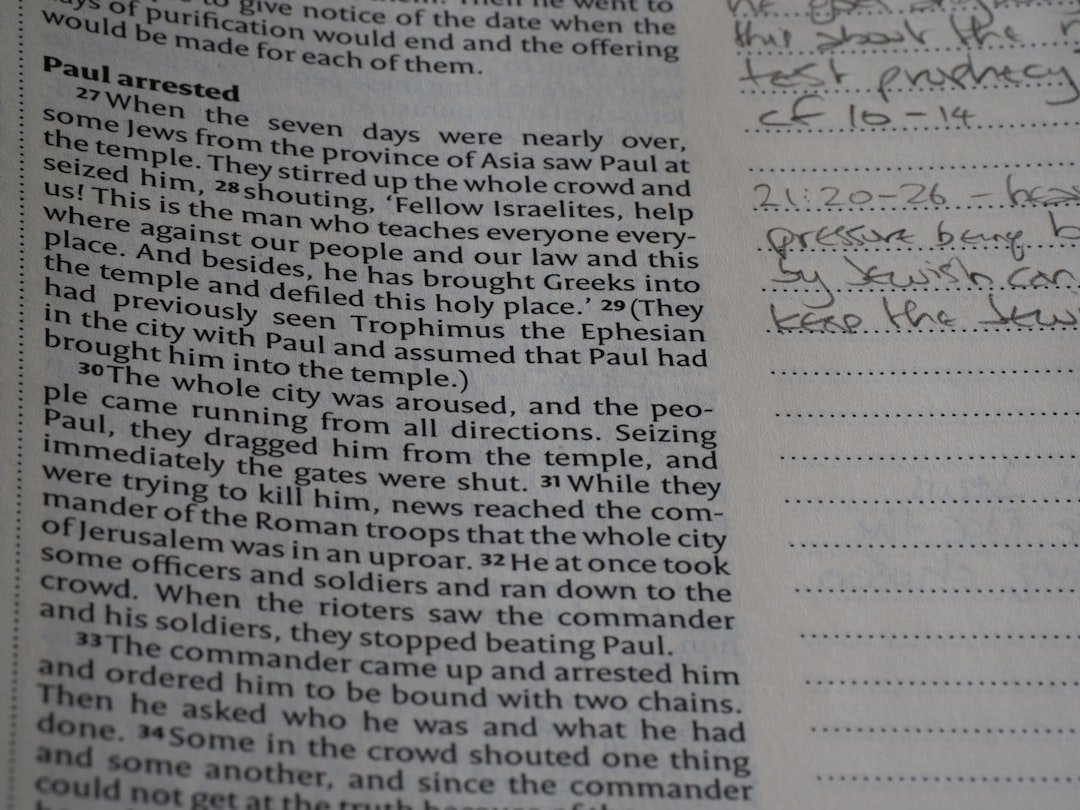 give notice of the date when the
days of purification would end and the offering
would be made for each of them.
Paul arrested
27 When the seven days were nearly over,
some Jews from the province of Asia saw Paul at
the temple. They stirred up the whole crowd and
seized him, 28 shouting, ‘Fellow Israelites, help
us! This is the man who teaches everyone every-
where against our people and our law and this
place. And besides, he has brought Greeks into
the temple and defiled this holy place.’ 29 (They
had previously seen Trophimus the Ephesian
in the city with Paul and assumed that Paul had
brought him into the temple.)
30 The whole city was aroused, and the peo-
ple came running from all directions. Seizing
Paul, they dragged him from the temple, and
immediately the gates were shut. 31 While they
were trying to kill him, news reached the com-
mander of the Roman troops that the whole city
of Jerusalem was in an uproar. 32 He at once took
some officers and soldiers and ran down to the
crowd. When the rioters saw the commander
and his soldiers, they stopped beating Paul.
33 The commander came up and arrested him
and ordered him to be bound with two chains.
Then he asked who he was and what he had
done. 34 Some in the crowd shouted one thing
and some another, and since the commander
could not get at the truth because of the
this about the
test prophecy
cf 10-14
21:20-26 -
pressure being
by Jewish
keep the